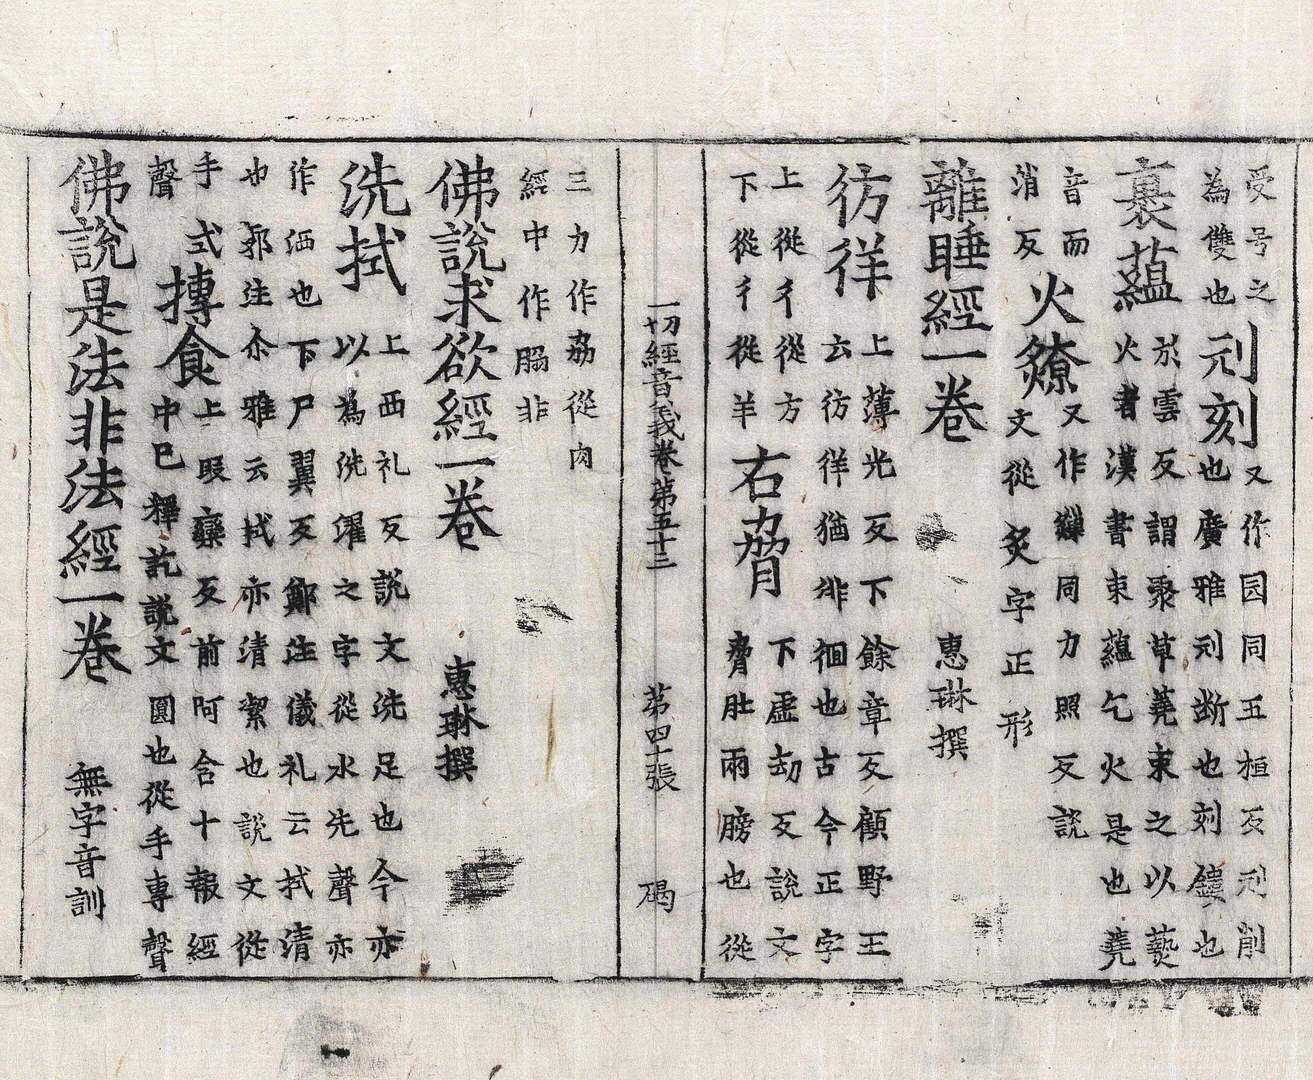 受号之
為雙也
刓刻
又作园同五桓反刓削
也廣雅刓断也刻鏤也
裹蘊
於雲反謂聚草蕘束之以爇
火者漢書束蘊乞火是也蕘
音而
消反
火燎
又作𤑗同力照反説
文從炙字正形
離睡經一卷
惠琳撰
彷徉
上薄光反下餘章反顧野王
云彷徉猶徘徊也古今正字
上從彳從方
下從彳從羊
右脅
下虚刧反説文
脅肚兩膀也從
一切經音義卷第五十三 第四十張 碣
三力作劦從肉
經中作脇非
佛說求欲經一卷
惠琳撰
洗拭
上西礼反説文洗足也今亦
以為洗濯之字從水先聲亦
作洒也下尸翼反鄭注儀礼云拭清
也郭注尒雅云拭亦清潔也說文從
手式
聲
摶食
上叚欒反前阿含十報經
中巳釋訖説文圓也從手專聲
佛說是法非法經一卷
無字音訓